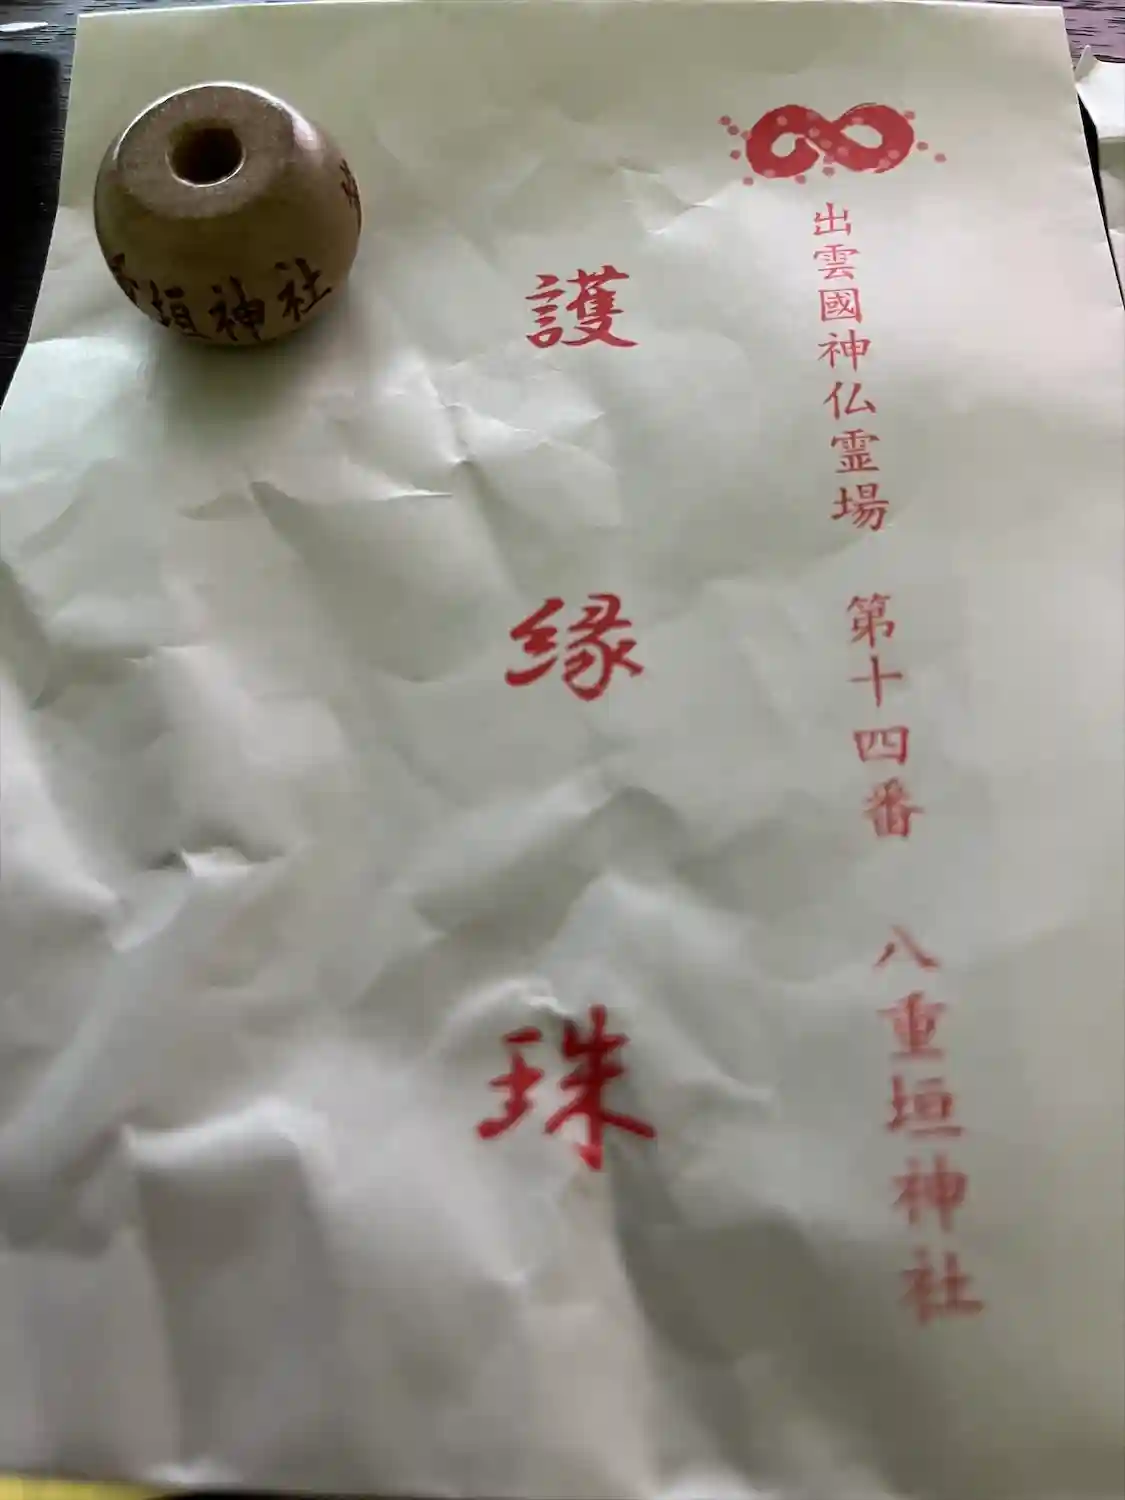 出雲國神仏霊場 第十四番 八重垣神社
護縁珠
垣神社